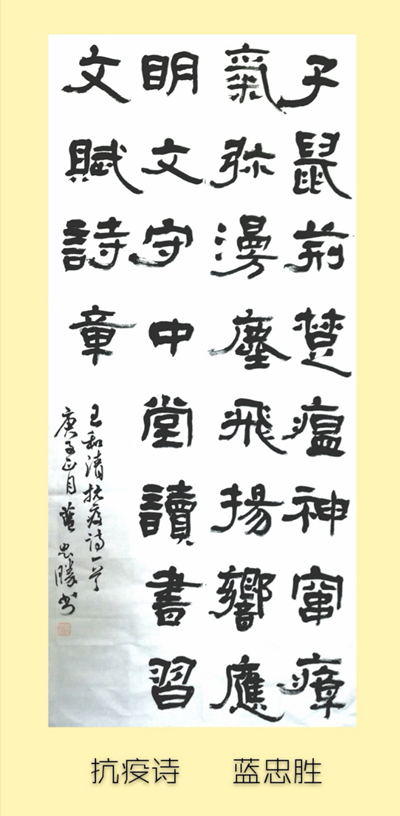 子鼠荊楚瘟神窜瘴
氣弥漫塵飛揚響應
明文守中堂讀書習
文賦詩章
王和清抗疫诗一首
庚子正月蓝忠勝书
抗疫诗 蓝忠胜